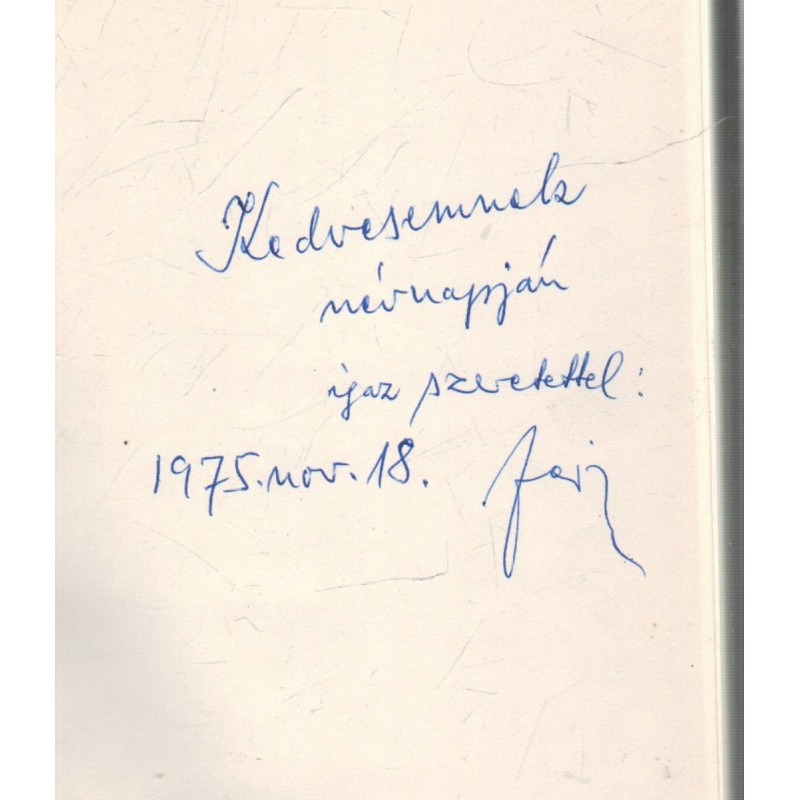 Kedvesemnek
névnapján
igaz szeretettel:
1975. nov. 18.